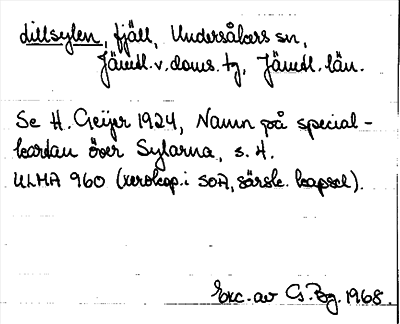 dillsylen, fjäll, Undersåkers sn,
Jämtl. v. doms. tg, Jämtl. län.
Se H. Geijer 1924, Namn på special-
kartan över Sylarna, s. 4.
ULMA 960 (xerokop. i SOA, särsk. kapsel).
Exc. av G. Bg. 1968.